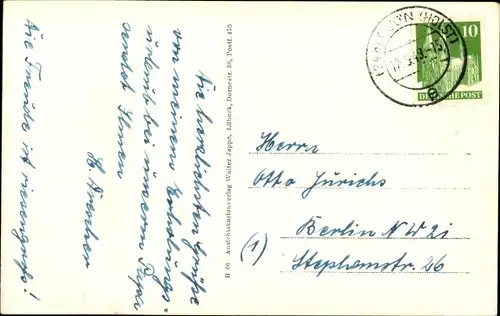 Die herzlichsten Grüße
von meinem Erholungs-
urlaub bei unserem Papa
sendet Ihnen
H.
Die Freude ist riesengroß!
B 66 Ansichtskartenverlag Walter Jappe, Lübeck, Dornestr. 38, Postf. 475
(HOLST)
10
DEUTSCHE POST
Herrn
Otto Jürichs
Berlin NW 21
(1)
Stephanstr. 26